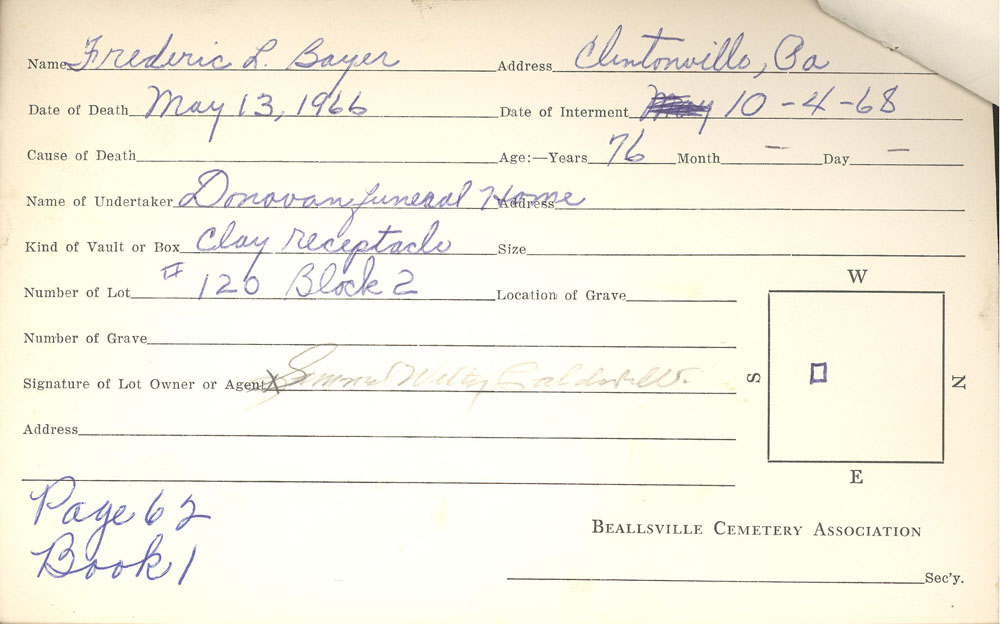 Name Frederic L. Bayer Address Clintonville, Pa
Date of Death May 13, 1966 Date of Interment May 10-4-68
Cause of Death Age:—Years 76 Month - Day -
Name of Undertaker Donovan funeral Home Address
Kind of Vault or Box Clay receptacle Size
Number of Lot # 120 Block 2 Location of Grave
W
Number of Grave
Signature of Lot Owner or Agent X
S N
Address
E
Page 62
Book 1
BEALLSVILLE CEMETERY ASSOCIATION
Sec'y.